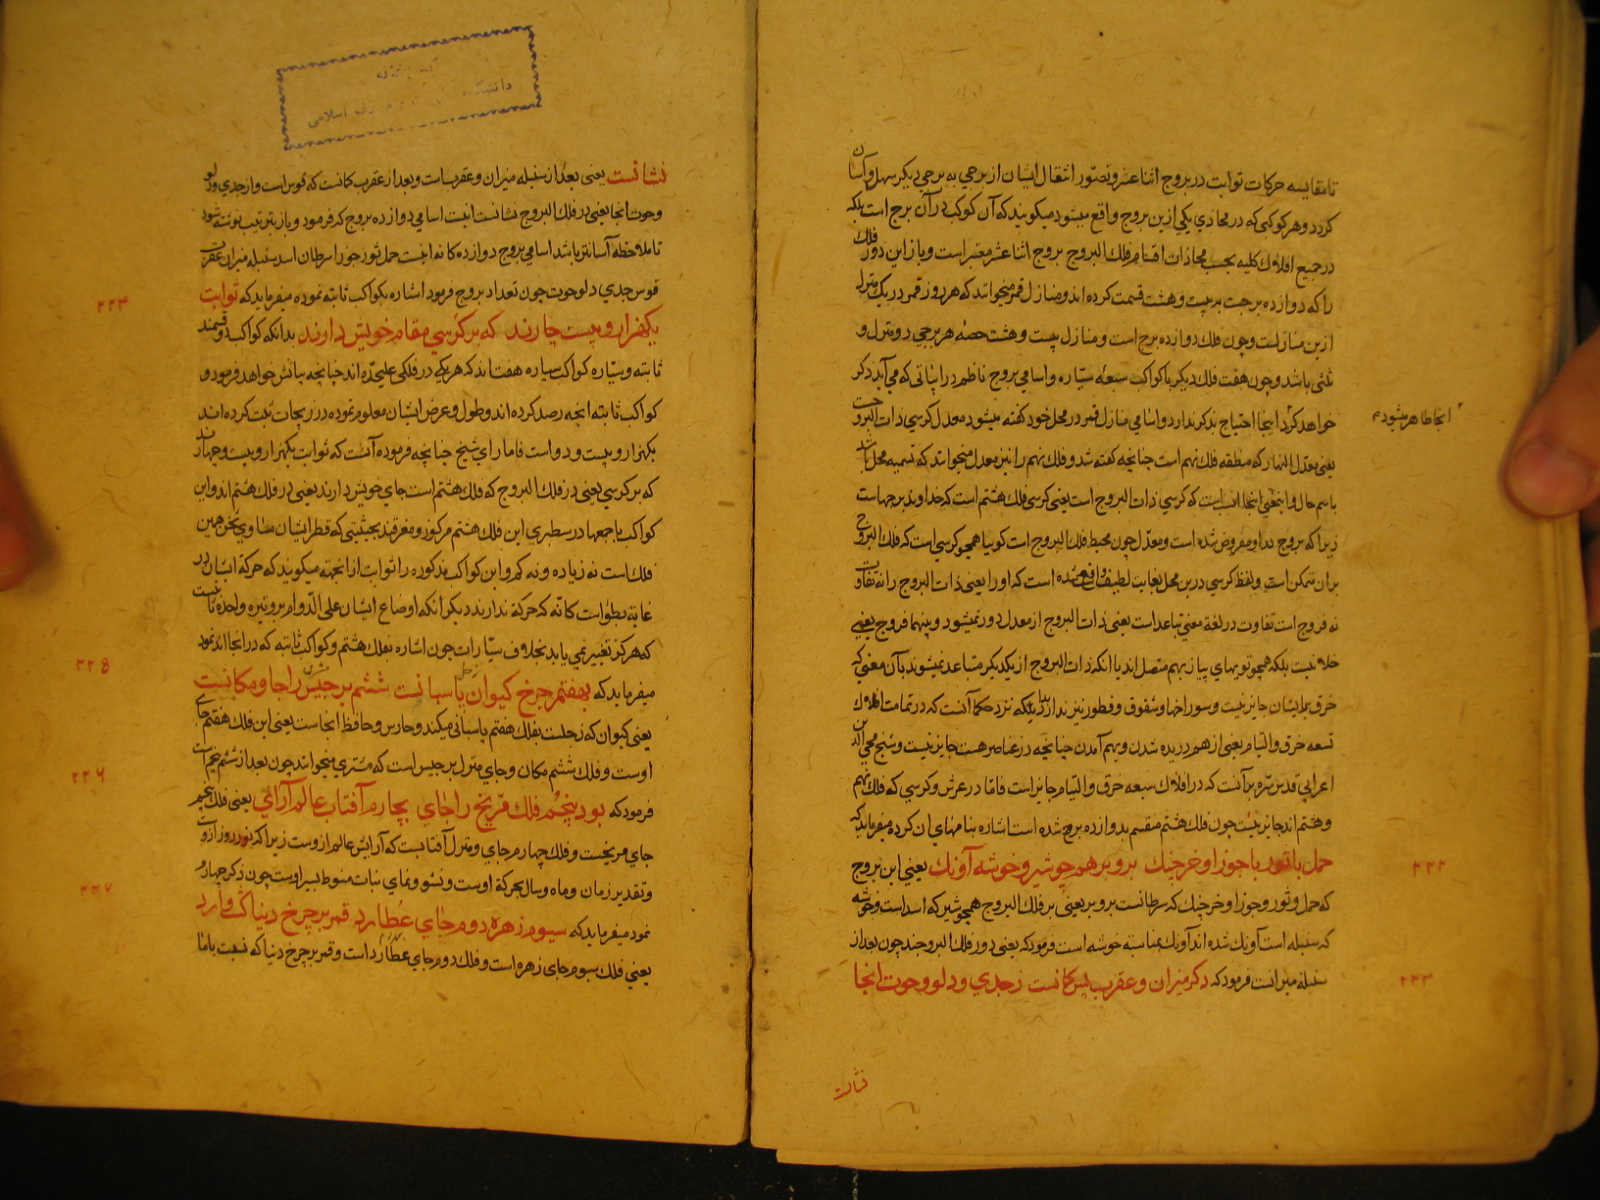 تا مقایسه حرکات ثوابت در بروج اثنا عشر و تصور انتقال ایشان از برجی به برجی دیگر سهل و آسان
کردد و هر کوکبی که در محاذی یکی ازین بروج واقع میشود میکویند که آن کوکب در آن برج است بلکه
در جمیع افلاک کلیه بحسب محاذات اقسام فلک البروج بروج اثنا عشر معتبر است و باز این دور فلک
را که دوازده برجست به بیست و هشت قسمت کرده اند و منازل قمر میخوانند که هر روز قمر در یک منزل
ازین منازلست و چون فلک دوازده برج است و منازل بیست و هشت حصه هر برجی دو منزل و
ثلثی باشد و چون هفت فلک دیکر با کواکب سبعه سیاره و اسامی بروج ناظم در ابیاتی که می آید ذکر
خواهد کرد اینجا احتیاج بذکر ندارد و اسامی منازل قمر در محل خود کفته میشود معدل کرسی ذات البروجست
انجا ظاهر میشود
یعنی معدل النهار که منطقه فلک نهم است چنانچه کفته شد و فلک نهم را نیز معدل میخوانند که تسمیه محل باشد
باسم حال و اینمعنی اینجا انسب است که کرسی ذات البروج است یعنی کرسی فلک هشتم است که خداوند برجهاست
زیرا که بروج درو مفروض شده است و معدل چون محیط فلک البروج است کوییا همچو کرسی است که فلک البروج
بران متمکن است و لفظ کرسی درین محل بغایت لطیف واقع شده است که او را یعنی ذات البروج را نه تفاوت
نه فروج است تفاوت در لغة معنی تباعد است یعنی ذات البروج از معدل دور نمیشود و بینهما فروج یعنی
خلا نیست بلکه همچو تویهای پیاز بهم متصل اند یا انکه ذات البروج از یکدیکر متباعد نمیشوند بآن معنی که
خرق برایشان جایز نیست و سوراخها و شقوق و فطور نیز ندارند بلکه نزد حکما آنست که در تمامت افلاک
تسعه خرق و التیام یعنی از هم دریده شدن و بهم آمدن چنانچه در عناصر هست جایز نیست و شیخ محی الدین
اعرابی قدس سره برآنست که در افلاک سبعه خرق و التیام جایز است فاما در عرش و کرسی که فلک نهم
و هشتم اند جایز نیست چون فلک هشتم منقسم بدوازده برج شده است اشاره بنامهای ان کرده میفرماید که
حمل با ثور با جوزا و خرچنک برو بر همچو شیر و خوشه آونک یعنی این بروج
۲۲۲
که حمل و ثور و جوزا و خرچنک که سرطانست برو بر یعنی بر فلک البروج همچو شیر که اسد است و خوشه
که سنبله است آونک شده اند آونک بمناسبه خوشه است فرمود که یعنی دور فلک البروجند چون بعد از
سنبله میزانست فرمود که دکر میزان و عقرب پس کمانست ز جدی و دلو و حوت انجا
۲۲۳
نشانست
نشانست یعنی بعد از سنبله میزان و عقربست و بعد از عقرب کمانست که قوس است و از جدی و دلو
و حوت انجا یعنی در فلک البروج نشانست اینست اسامی دوازده بروج که فرمود و باز بترتیب نوشته شود
تا ملاحظه آسانتر باشد اسامی بروج دوازده کانه اینست حمل ثور جوزا سرطان اسد سنبله میزان عقرب
قوس جدی دلو حوت چون تعداد بروج فرمود اشاره بکواکب ثابته نموده میفرماید که ثوابت
۲۲۴
یکهزار و بیست چارند که بر کرسی مقام خویش دارند بدانکه کواکب دو قسمند
ثابته و سیاره کواکب سیاره هفتاند که هر یکی در فلکی علیحده اند چنانچه بیانش خواهد فرمود و
کواکب ثابته انچه رصد کرده اند و طول و عرض ایشان معلوم نموده در زیجات ثبت کرده اند
یکهزار و بیست و دو است فاما رای شیخ چنانچه فرموده آنست که ثوابت یکهزار و بیست و چهار اند
که بر کرسی یعنی در فلک البروج که فلک هشتم است جای خویش دارند یعنی در فلک هشتم اند و این
کواکب باجمعها در سطبری این فلک هشتم مرکوز و مغرقند بحیثیتی که قطر ایشان مساوی ثخن همین
فلک است نه زیاده و نه کم و این کواکب مذکوره را ثوابت ازانجهة میکویند که حرکة ایشان در
غایة بطؤ است کانه که حرکة ندارند دیکر انکه اوضاع ایشان علی الدوام بر وتیره واحده ثابتست
که هرکز تغییر نمی یابد بخلاف سیارات چون اشاره بفلک هشتم و کواکب ثابته که در انجا اند نمود
میفرماید که بهفتم چرخ کیوان پاسبانست ششم برجیس را جا و مکانست
۲۲۵
یعنی کیوان که زحلست بفلک هفتم پاسبانی میکند و حارس و حافظ انجاست یعنی این فلک هفتم جای
اوست و فلک ششم مکان و جای منزل برجیس است که مشتری میخوانند چون بعد از ششم پنجم است
۲۲۶
فرمود که بود پنجم فلک مریخ را جای بچارم آفتاب عالم آرای یعنی فلک پنجم
جای مریخست و فلک چهارم جای و منزل آفتابست که آرایش عالم ازوست زیرا که نور روز ازوست
و تقدیر زمان و ماه و سال بحرکة اوست و نشو و نمای نبات منوط بسیر اوست چون ذکر چهارم
۲۲۷
نمود میفرماید که سیوم زهره دوم جای عطارد قمر بر چرخ دنیا کشت وارد
یعنی فلک سیوم جای زهره است و فلک دوم جای عطارد است و قمر بر چرخ دنیا که نسبت باما